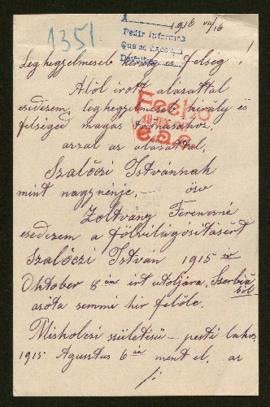 1351
A
1916 VII/16
Pedir informes
Legkegyelmesebb király és felség!
Alól írott alázattal
esedezem, legkegyelmesebb király és
felséged magas
azzal az alázattal,
Szalóczi Istvánnak
mint nagynénje, – özv
Zoltvány Ferencné
esedezem a fölvilágósitásért
Szalóczi István 1915 ik
Oktober 8 án irt utoljára, Szerbiá
ból
azóta semmi hir felőle.
Miskolczi születésü – pesti lakos,
1915 Agustus 6 án ment el, az